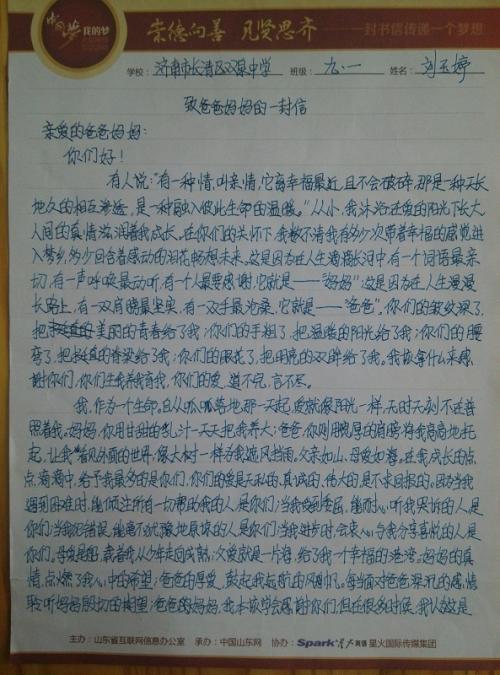 中国梦 我的梦
崇德向善 见贤思齐
一封书信传递一个梦想
学校：济南市长清区双泉中学 班级：九.一 姓名：刘玉婷
致爸爸妈妈的一封信
亲爱的爸爸妈妈：
你们好！
有人说："有一种情，叫亲情，它离幸福最近，且不会破碎，那是一种天长
地久的相互渗透，是一种融入彼此生命的温暖。"从小，我沐浴在爱的阳光下长大
人间的真情滋润着我成长。在你们的关怀下，我数不清我有多少次带着幸福的感觉进
入梦乡，多少回含着感动的泪花畅想未来。这是因为在人生漫漫长河中，有一个词语最亲
切，有一声呼唤最动听，有一个人最要感谢，它就是——"妈妈"这是因为在人生漫漫
长路上，有一双肩膀最坚实，有一双手最沧桑，它就是——"爸爸"，你们的皱纹深了，
把美丽的青春给了我；你们的手粗了，把温暖的阳光给了我；你们的腰
弯了，把挺直的脊梁给了我；你们的眼花了，把明亮的双眸给了我。我该拿什么来感
谢你们，你们生我养我育我，你们的爱，道不完，言不尽。
我，作为一个生命。自从呱呱落地那一天起，爱就像阳光一样，无时无刻不在普
照着我。妈妈，你用甘甜的乳汁一天天把我养大；爸爸，你则用脱厚的肩膀将我高高地托
起，让我看外面的世界，像大树一样为我遮风挡雨，父亲如山，母爱如海。在我成长的点
点滴滴中，给予我最多的是你们，你们的爱是无私的，真诚的，伟大的是不求回报的。因为当我
遇到困难时，能倾注所有一切帮助我的人是你们；当我受到委屈，能耐心听我哭诉的人是
你们；当我犯错误，能毫不犹豫地原谅的人是你们；当我进步时，会衷心为我分享喜悦的人是
你们。母爱是船，载着我从少年走向成熟；父爱就是一片海，给了我一个幸福的港湾。妈妈的真
情，点燃了我心中的希望；爸爸的厚爱，鼓起我远航的风帆。每当面对爸爸深沉的感情
聆听妈妈殷切的期望；爸爸妈妈，我本该学会感谢你们，但在很多时候，我认为这是
主办：山东省互联网信息办公室 承办：中国山东网 协办：Spark 星火英语 星火国际传媒集团